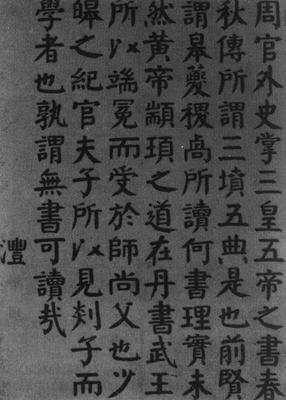 周官外史掌三皇五帝之書春
秋傳所謂三墳五典是也前賢
謂皋夔稷卨所讀何書理實未
然黃帝顓頊之道在丹書武王
所以端冕而受於師尚父也少
皞之紀官夫子所以見剡子而
學者也孰謂無書可讀㦲
灃